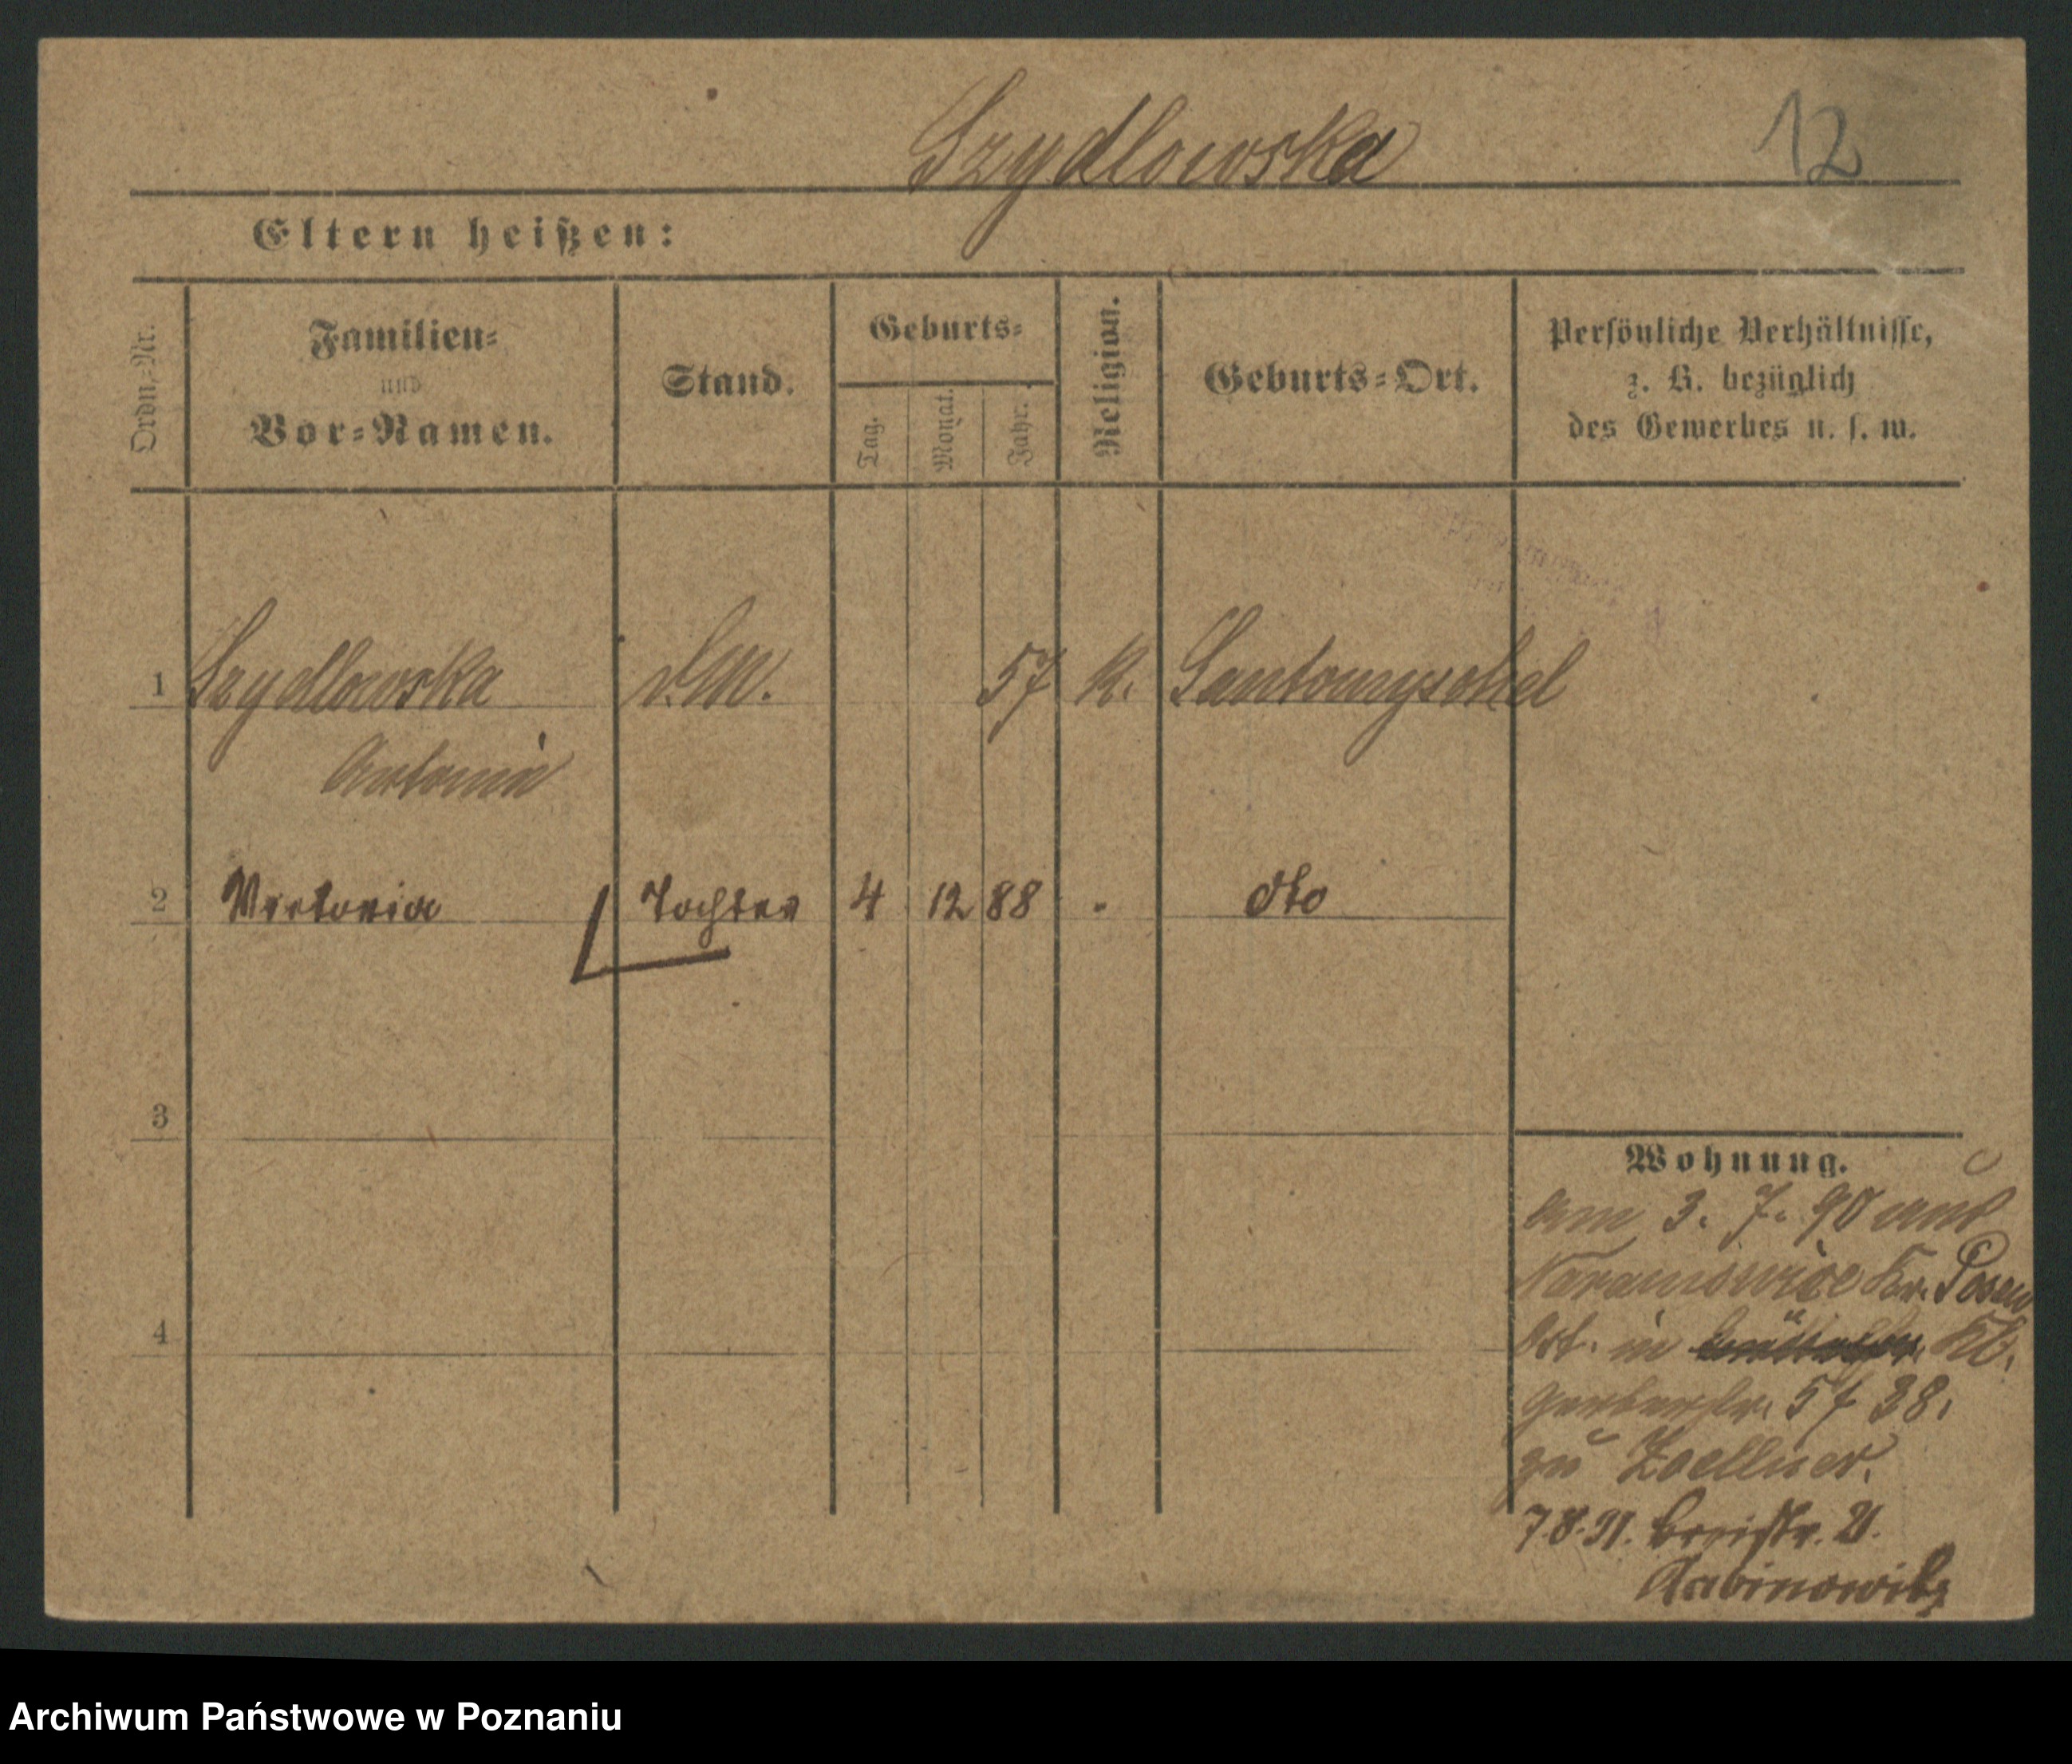 Szydlowska 12
Eltern heißen:
Ordn.-Nr.
Familien-
und
Vor-Namen.
Stand.
Geburts-
Tag.
Monat.
Jahr.
Religion.
Geburts-Ort.
Persönliche Verhältnisse,
z. B. bezüglich
des Gewerbes u. s. w.
1 Szydlowska 57 k. Santomyschel
Antonin
2 Tochter 4 12 88 dto
3
4
Wohnung.
am 3. 7. 90 aus
Naramowice Kr. Posen
Ost. in Kl.
Gerberstr. 5 f 38.
zu Zoellner.
7.8.91. Breitstr. 21.
Rabinowitz
Archiwum Państwowe w Poznaniu